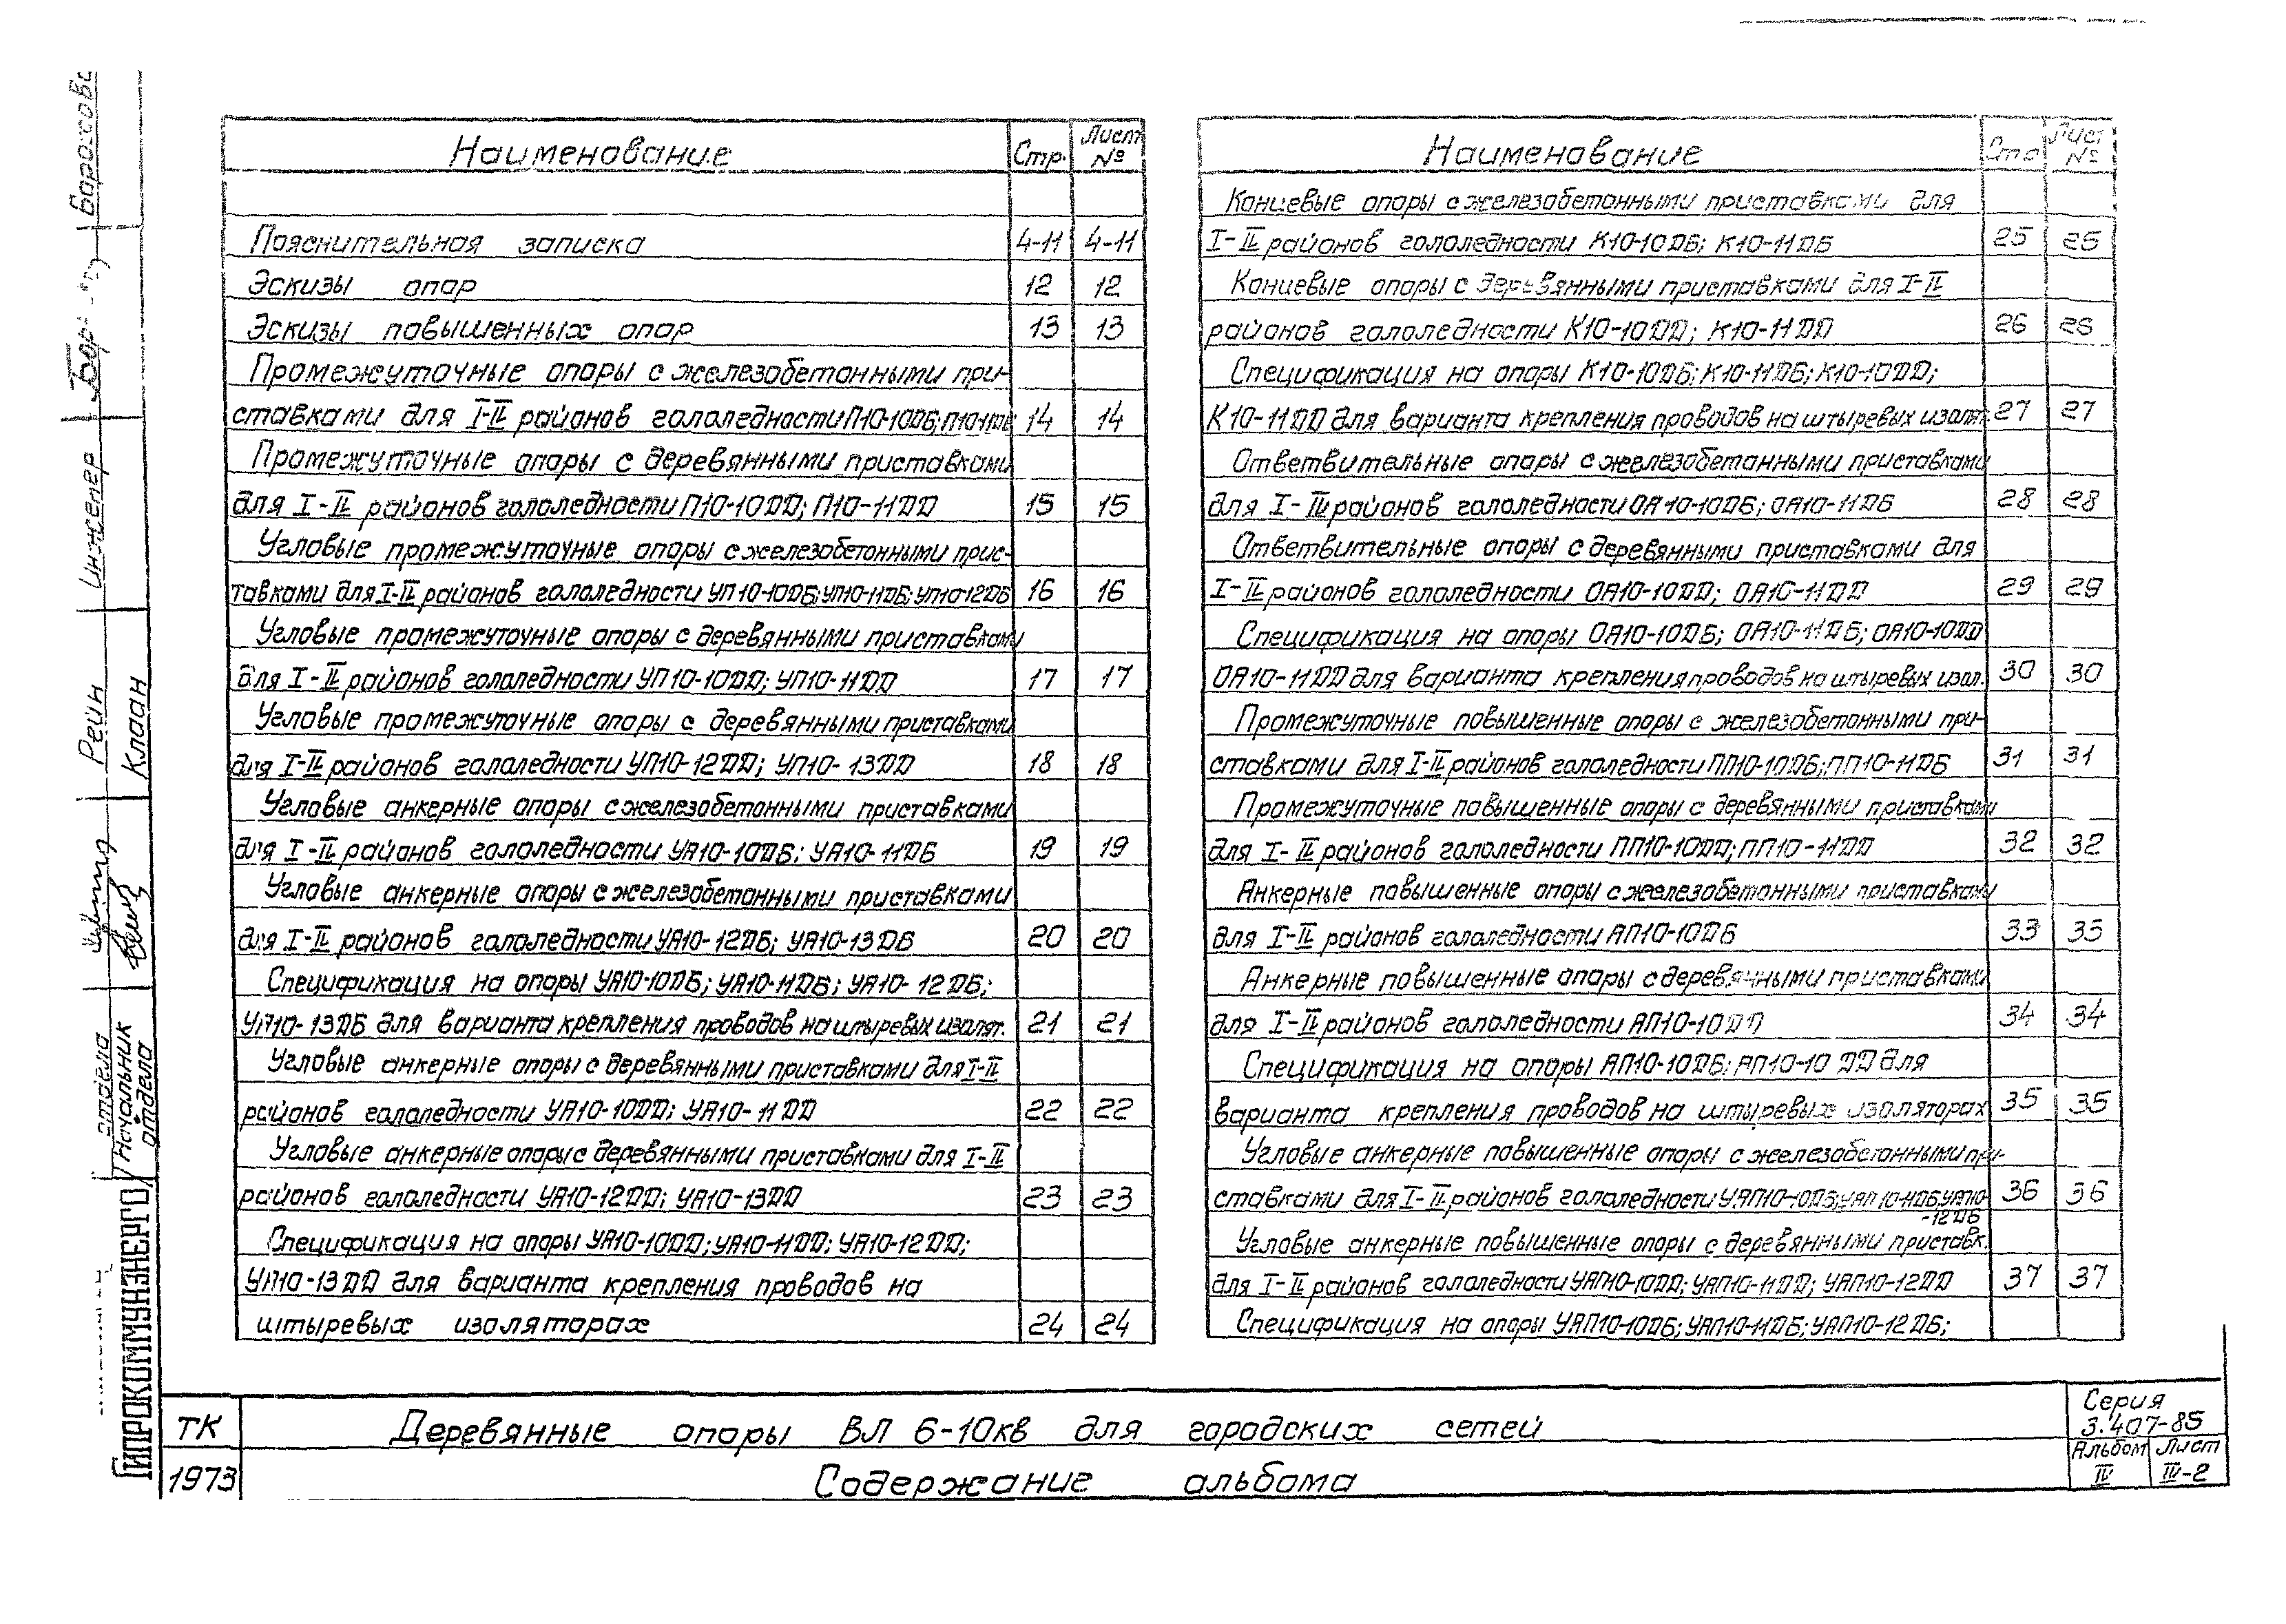 Наименование Стр. Лист №
Пояснительная записка 4-11 4-11
Эскизы опор 12 12
Эскизы повышенных опор 13 13
Промежуточные опоры с железобетонными при-
ставками для I-IV районов гололедности П10-10ДБ; П10-11ДБ 14 14
Промежуточные опоры с деревянными приставками
для I-IV районов гололедности П10-10ДД; П10-11ДД 15 15
Угловые промежуточные опоры с железобетонными прис-
тавками для I-IV районов гололедности УП10-10ДБ; УП10-11ДБ; УП10-12ДБ 16 16
Угловые промежуточные опоры с деревянными приставками
для I-IV районов гололедности УП10-10ДД; УП10-11ДД 17 17
Угловые промежуточные опоры с деревянными приставками
для I-IV районов гололедности УП10-12ДД; УП10-13ДД 18 18
Угловые анкерные опоры с железобетонными приставками
для I-IV районов гололедности УА10-10ДБ; УА10-11ДБ 19 19
Угловые анкерные опоры с железобетонными приставками
для I-IV районов гололедности УА10-12ДБ; УА10-13ДБ 20 20
Спецификация на опоры УА10-10ДБ; УА10-11ДБ; УА10-12ДБ;
УА10-13ДБ для варианта крепления проводов на штыревых изолят. 21 21
Угловые анкерные опоры с деревянными приставками для I-IV
районов гололедности УА10-10ДД; УА10-11ДД 22 22
Угловые анкерные опоры с деревянными приставками для I-IV
районов гололедности УА10-12ДД; УА10-13ДД 23 23
Спецификация на опоры УА10-10ДД; УА10-11ДД; УА10-12ДД;
УА10-13ДД для варианта крепления проводов на
штыревых изоляторах 24 24
Наименование Стр Лист №
Концевые опоры с железобетонными приставками для
I-IV районов гололедности К10-10ДБ; К10-11ДБ 25 25
Концевые опоры с деревянными приставками для I-IV
районов гололедности К10-10ДД; К10-11ДД 26 26
Спецификация на опоры К10-10ДБ; К10-11ДБ; К10-10ДД;
К10-11ДД для варианта крепления проводов на штыревых изолят. 27 27
Ответвительные опоры с железобетонными приставками
для I-IV районов гололедности ОА10-10ДБ; ОА10-11ДБ 28 28
Ответвительные опоры с деревянными приставками для
I-IV районов гололедности ОА10-10ДД; ОА10-11ДД 29 29
Спецификация на опоры ОА10-10ДБ; ОА10-11ДБ; ОА10-10ДД
ОА10-11ДД для варианта крепления проводов на штыревых изол. 30 30
Промежуточные повышенные опоры с железобетонными при-
ставками для I-IV районов гололедности ПП10-10ДБ; ПП10-11ДБ 31 31
Промежуточные повышенные опоры с деревянными приставками
для I-IV районов гололедности ПП10-10ДД; ПП10-11ДД 32 32
Анкерные повышенные опоры с железобетонными приставками
для I-IV районов гололедности АП10-10ДБ 33 33
Анкерные повышенные опоры с деревянными приставками
для I-IV районов гололедности АП10-10ДД 34 34
Спецификация на опоры АП10-10ДБ; АП10-10ДД для
варианта крепления проводов на штыревых изоляторах 35 35
Угловые анкерные повышенные опоры с железобетонными при-
ставками для I-IV районов гололедности УАП10-10ДБ; УАП10-11ДБ; УАП10- 36 36
-12ДБ
Угловые анкерные повышенные опоры с деревянными приставк.
для I-IV районов гололедности УАП10-10ДД; УАП10-11ДД; УАП10-12ДД 37 37
Спецификация на опоры УАП10-10ДБ; УАП10-11ДБ; УАП10-12ДБ;
ТК
1973
Деревянные опоры ВЛ 6-10кв для городских сетей
Содержание альбома
Серия
3.407-85
Альбом Лист
IV IV-2
Гипрокоммунэнерго
отдела
Начальник
отдела
Рейн
Клаан
Инженер